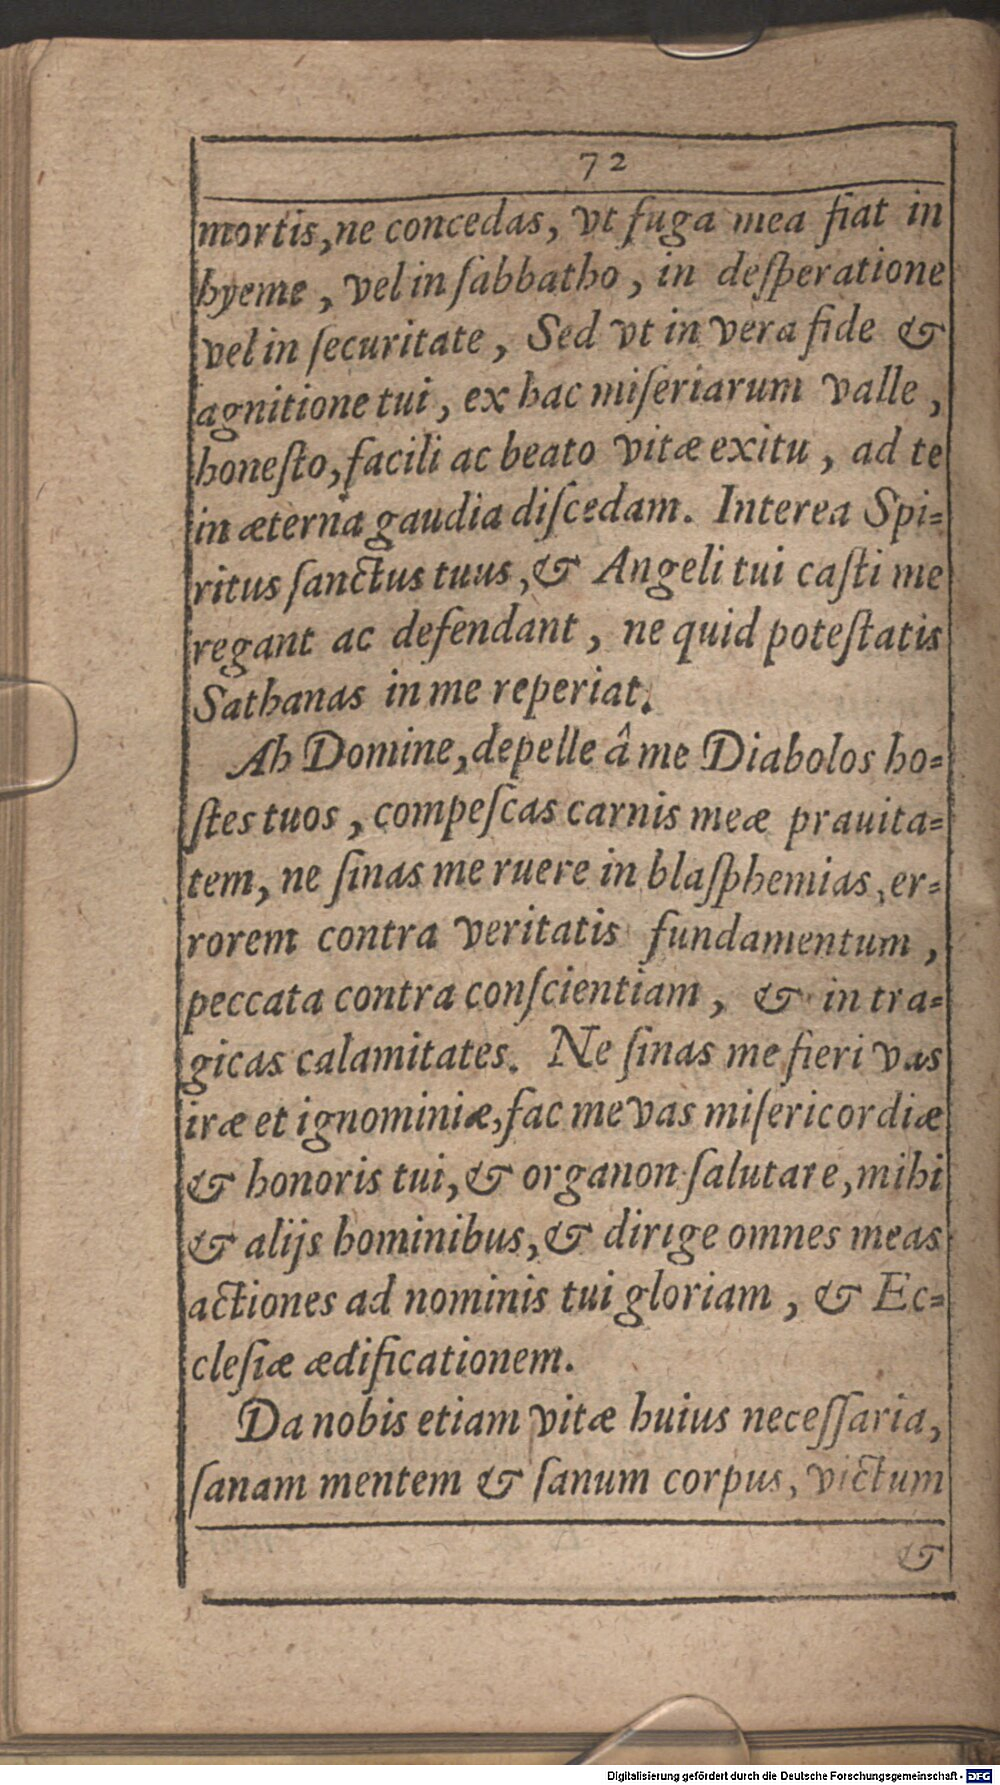 72
mortis, ne concedas, vt fuga mea fiat in
hyeme, vel in ſabbatho, in deſperatione
vel in ſecuritate, Sed vt in vera fide &
agnitione tui, ex hac miſeriarum valle,
honeſto, facili ac beato vitæ exitu, ad te
in æterna gaudia diſcedam. Interea Spi=
ritus ſanctus tuus, & Angeli tui caſti me
regant ac defendant, ne quid poteſtatis
Sathanas in me reperiat.
Ah Domine, depelle â me Diabolos ho=
ſtes tuos, compeſcas carnis meæ prauita=
tem, ne ſinas me ruere in blaſphemias, er=
rorem contra veritatis fundamentum,
peccata contra conſcientiam, & in tra=
gicas calamitates. Ne ſinas me fieri vas
iræ et ignominiæ, fac me vas miſericordiæ
& honoris tui, & organon ſalutare, mihi
& alijs hominibus, & dirige omnes meas
actiones ad nominis tui gloriam, & Ec=
cleſiæ ædificationem.
Da nobis etiam vitæ huius neceſſaria,
ſanam mentem & ſanum corpus, victum
&
Digitalisierung gefördert durch die Deutsche Forschungsgemeinschaft - DFG